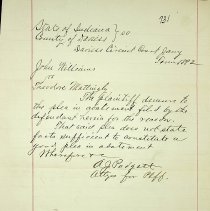 231
State of Indiana } SS
County of Daviess
Daviess Circuit Court Jany
Term 1882
John Williams
vs
Theodore Mattingly
The plaintiff demurs to
the plea in abatement filed by the
defendant herein for the reason.
That said plea does not state
facts sufficient to constitute a
good plea in abatement
Wherefore &c
A. J. Padgett
Atty for Plff.